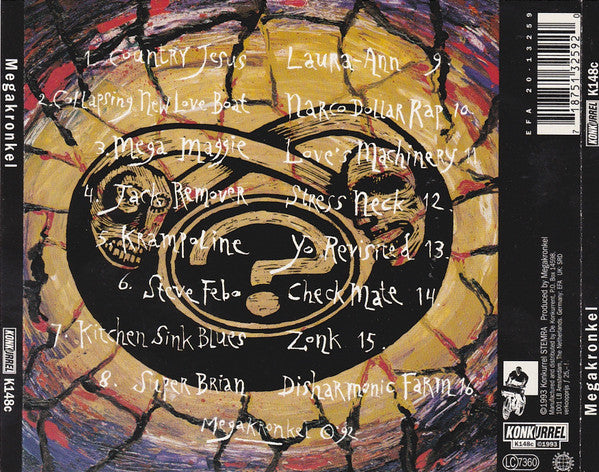 Megakronkel
KONKURREL
K148c
1. Country Jesus
2. Collapsing New Love Boat
3. Mega Maggie
4. Jack Remover
5. Krampoline
6. Steve Febo
7. Kitchen Sink Blues
8 Super Brian
Laura-Ann 9.
Narco Dollar Rap 10.
Love's Machinery 11
Stress Neck 12.
Yo Revisited 13.
Check Mate 14.
Zonk. 15
Disharmonic Farm 16.
Megakronkel © 92
?
EFA 20 13259
7 18751 32592 0
©1993 Konkurrel STEMRA Produced by Megakronkel
Manufactured and distributed by De Konkurrent, P.O. Box 14598,
1001 LB Amsterdam, The Netherlands. Germany: EFA, UK: SRD
verkoopprijs / 25,-!
KONKURREL
K148c 01993
LC 7360
KONKURREL
K148c
Megakronkel